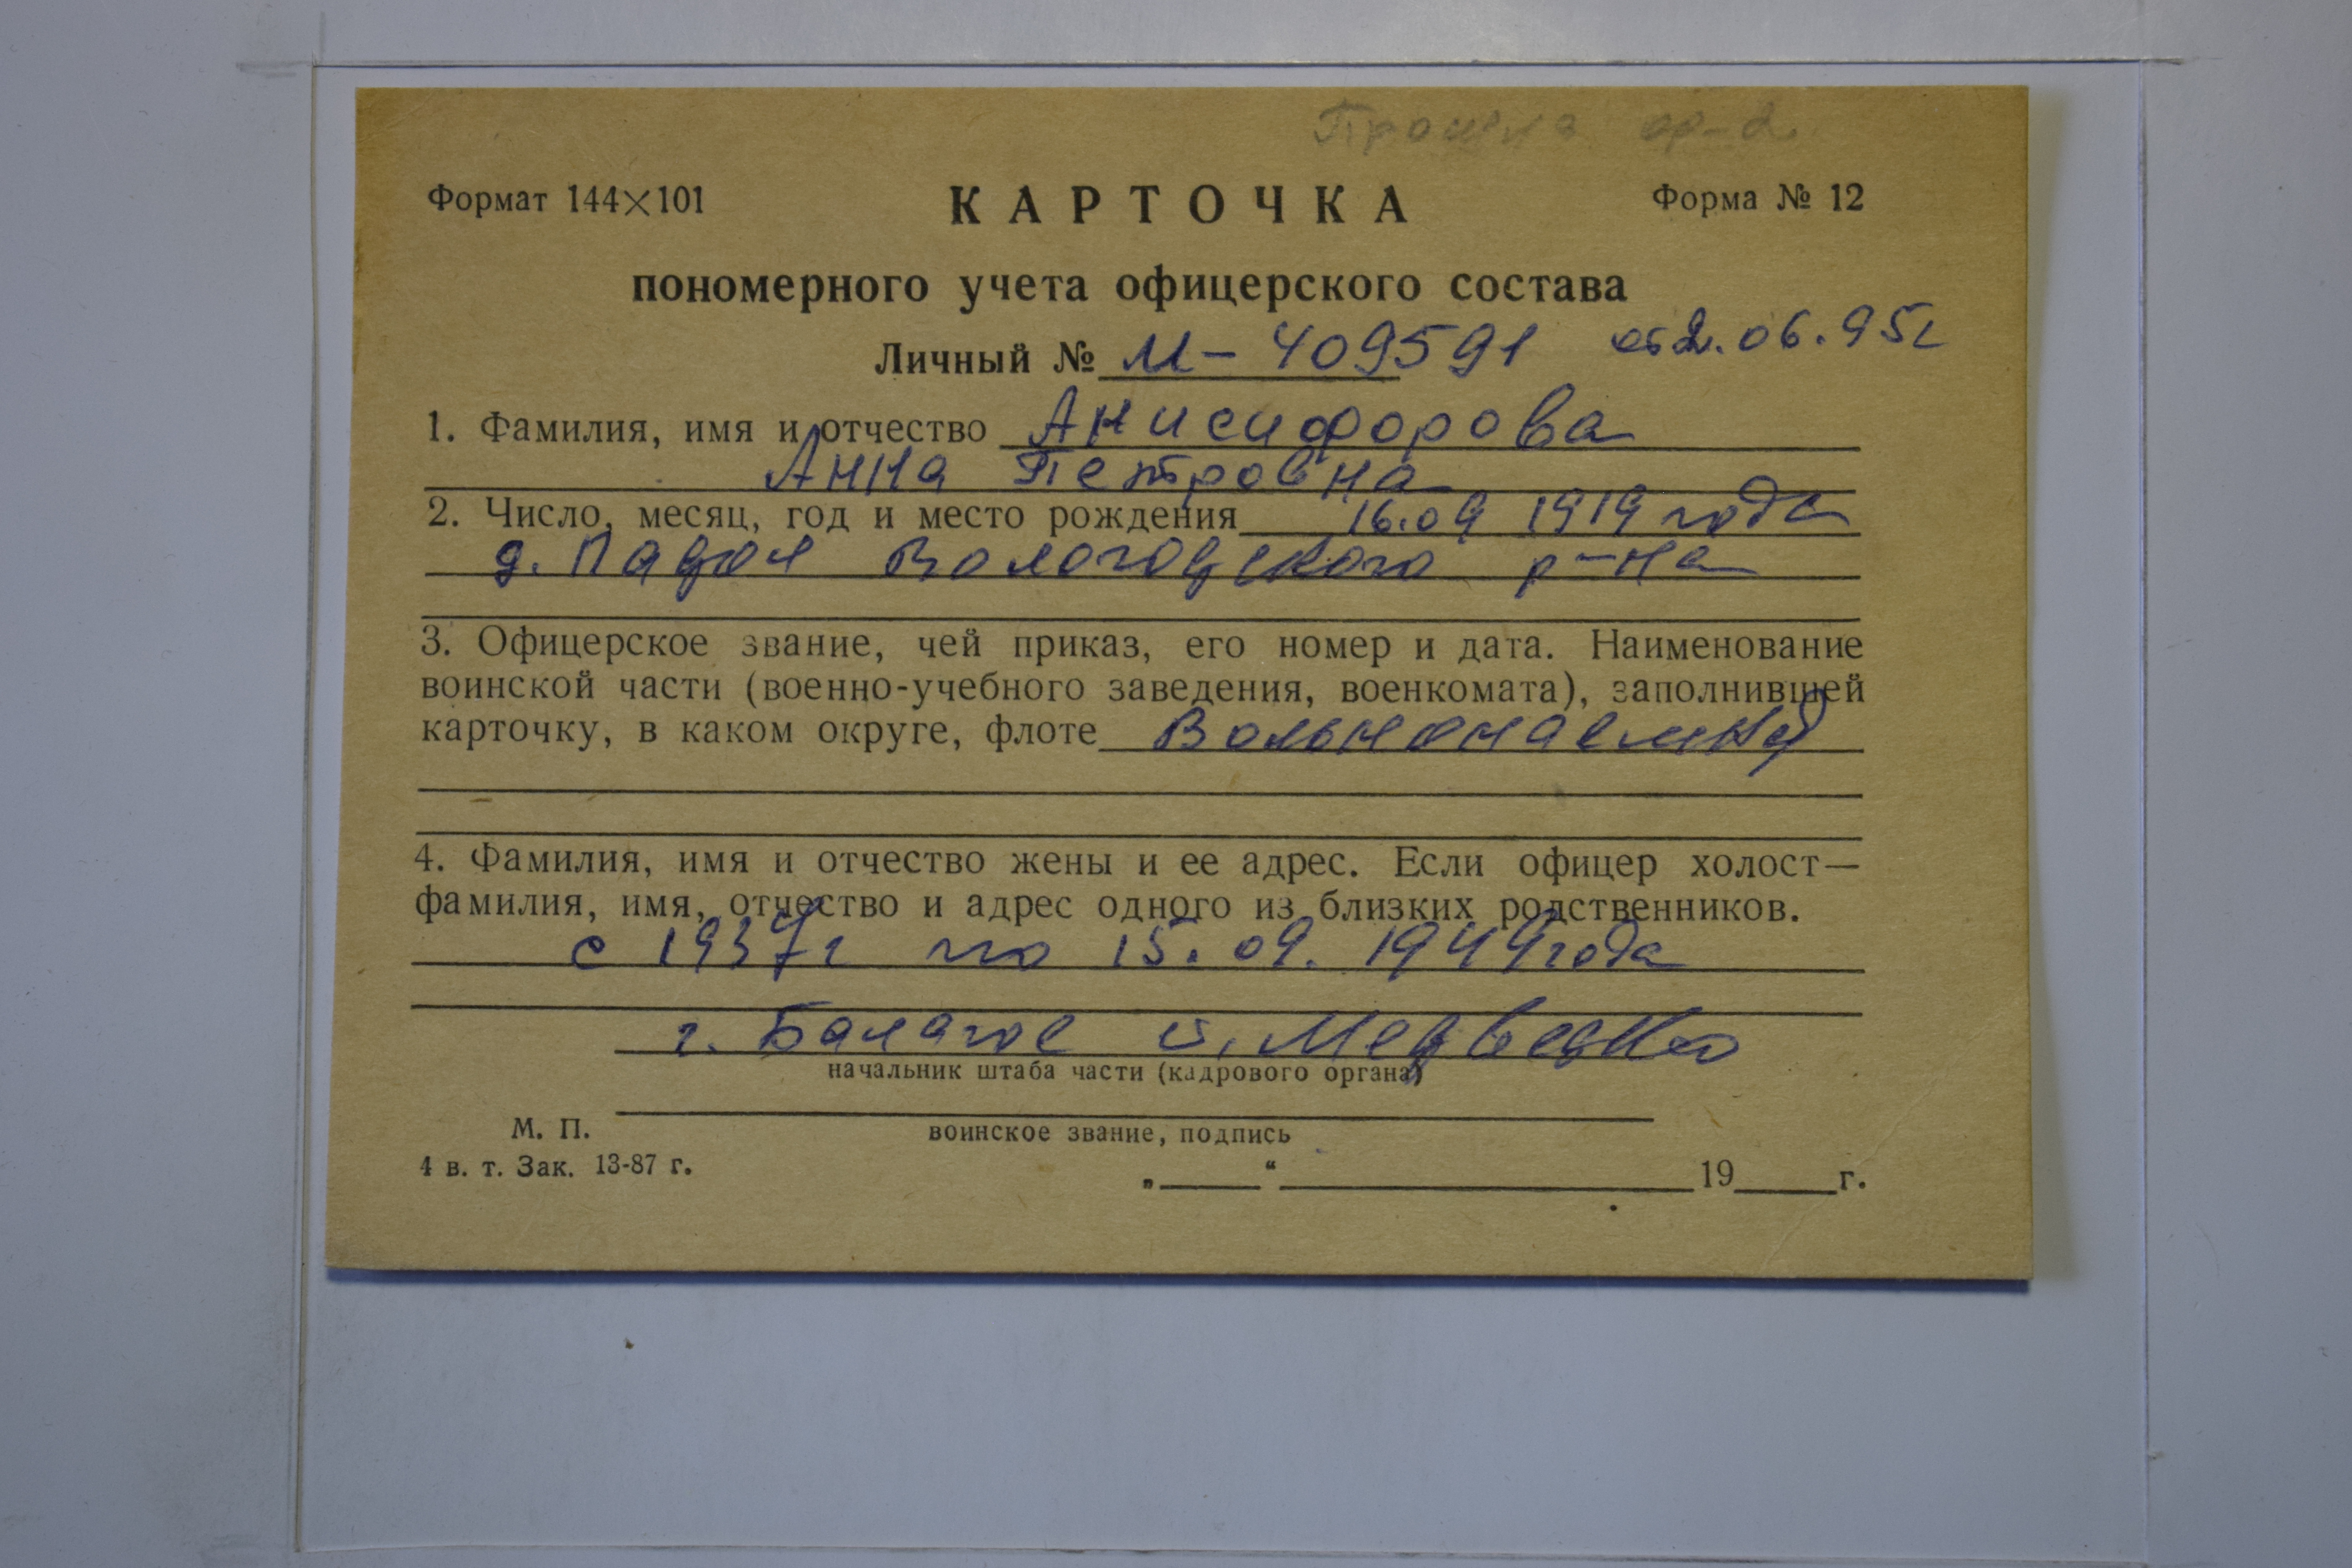 Прошла ф-2
Формат 144×101 КАРТОЧКА Форма № 12
пономерного учета офицерского состава
Личный № М-409591 от 2.06.95г
1. Фамилия, имя и отчество Анисифорова
Анна Петровна
2. Число, месяц, год и место рождения 16.09 1919 года
д. Падол Вологодского р-на
3. Офицерское звание, чей приказ, его номер и дата. Наименование
воинской части (военно-учебного заведения, военкомата), заполнившей
карточку, в каком округе, флоте Вольнонаемный
4. Фамилия, имя и отчество жены и ее адрес. Если офицер холост—
фамилия, имя, отчество и адрес одного из близких родственников.
с 1937г по 15.09.1944года
г. Балагое п. Медведко
начальник штаба части (кадрового органа)
М. П.
воинское звание, подпись
4 в. т. Зак. 13-87 г.
„ “ 19 г.